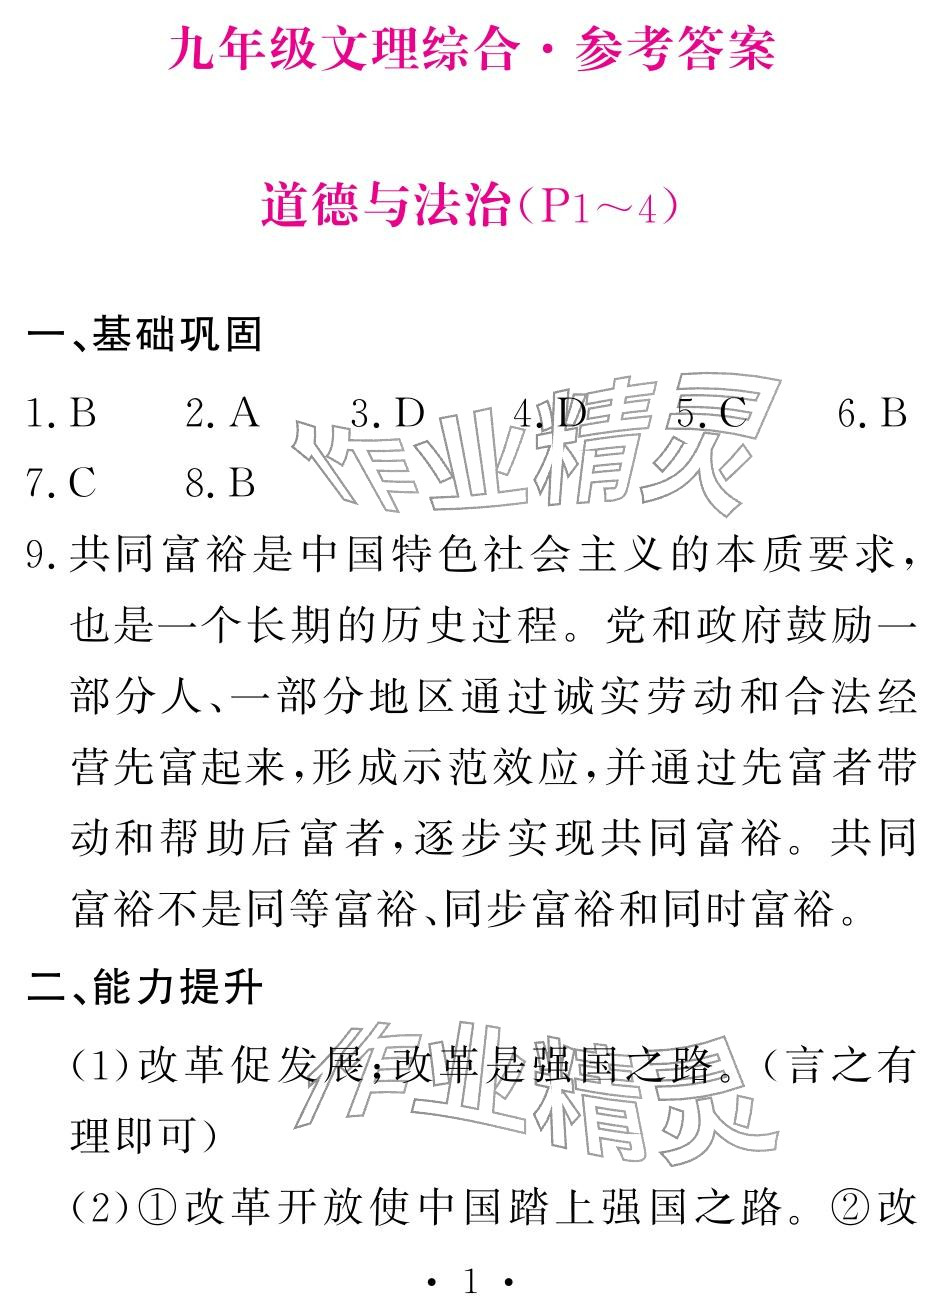 九年级文理综合·参考答案
道德与法治(P1～4)
一、基础巩固
1. B 2. A 3. D 4. D 5. C 6. B
7. C 8. B
9. 共同富裕是中国特色社会主义的本质要求，
也是一个长期的历史过程。党和政府鼓励一
部分人、一部分地区通过诚实劳动和合法经
营先富起来，形成示范效应，并通过先富者带
动和帮助后富者，逐步实现共同富裕。共同
富裕不是同等富裕、同步富裕和同时富裕。
二、能力提升
(1)改革促发展；改革是强国之路。（言之有
理即可）
(2)①改革开放使中国踏上强国之路。②改
· 1 ·
作业精灵
作业精灵